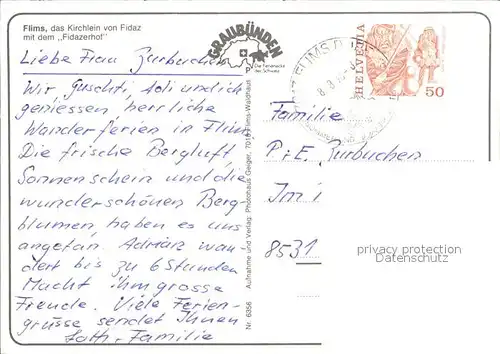 Flims, das Kirchlein von Fidaz
mit dem „Fidazerhof"
GRAUBÜNDEN
Die Ferienecke
der Schweiz
HELVETIA
50
Liebe Frau Zurbuchen
Wir Guschti, und ich
geniessen herrliche
Wanderferien in Flims
Die frische Bergluft,
Sonnenschein und die
wunderschönen Berg-
blumen, haben es uns
angetan. wan-
dert bis zu 6 Stunden
Macht ihm grosse
Freude. Viele Ferien-
grüsse sendet Ihnen
Familie
Familie
P. + E. Zurbuchen
Im i
8531
Nr. 6356 Aufnahme und Verlag: Photohaus Geiger, 7018 Flims-Waldhaus
privacy protection
Datenschutz